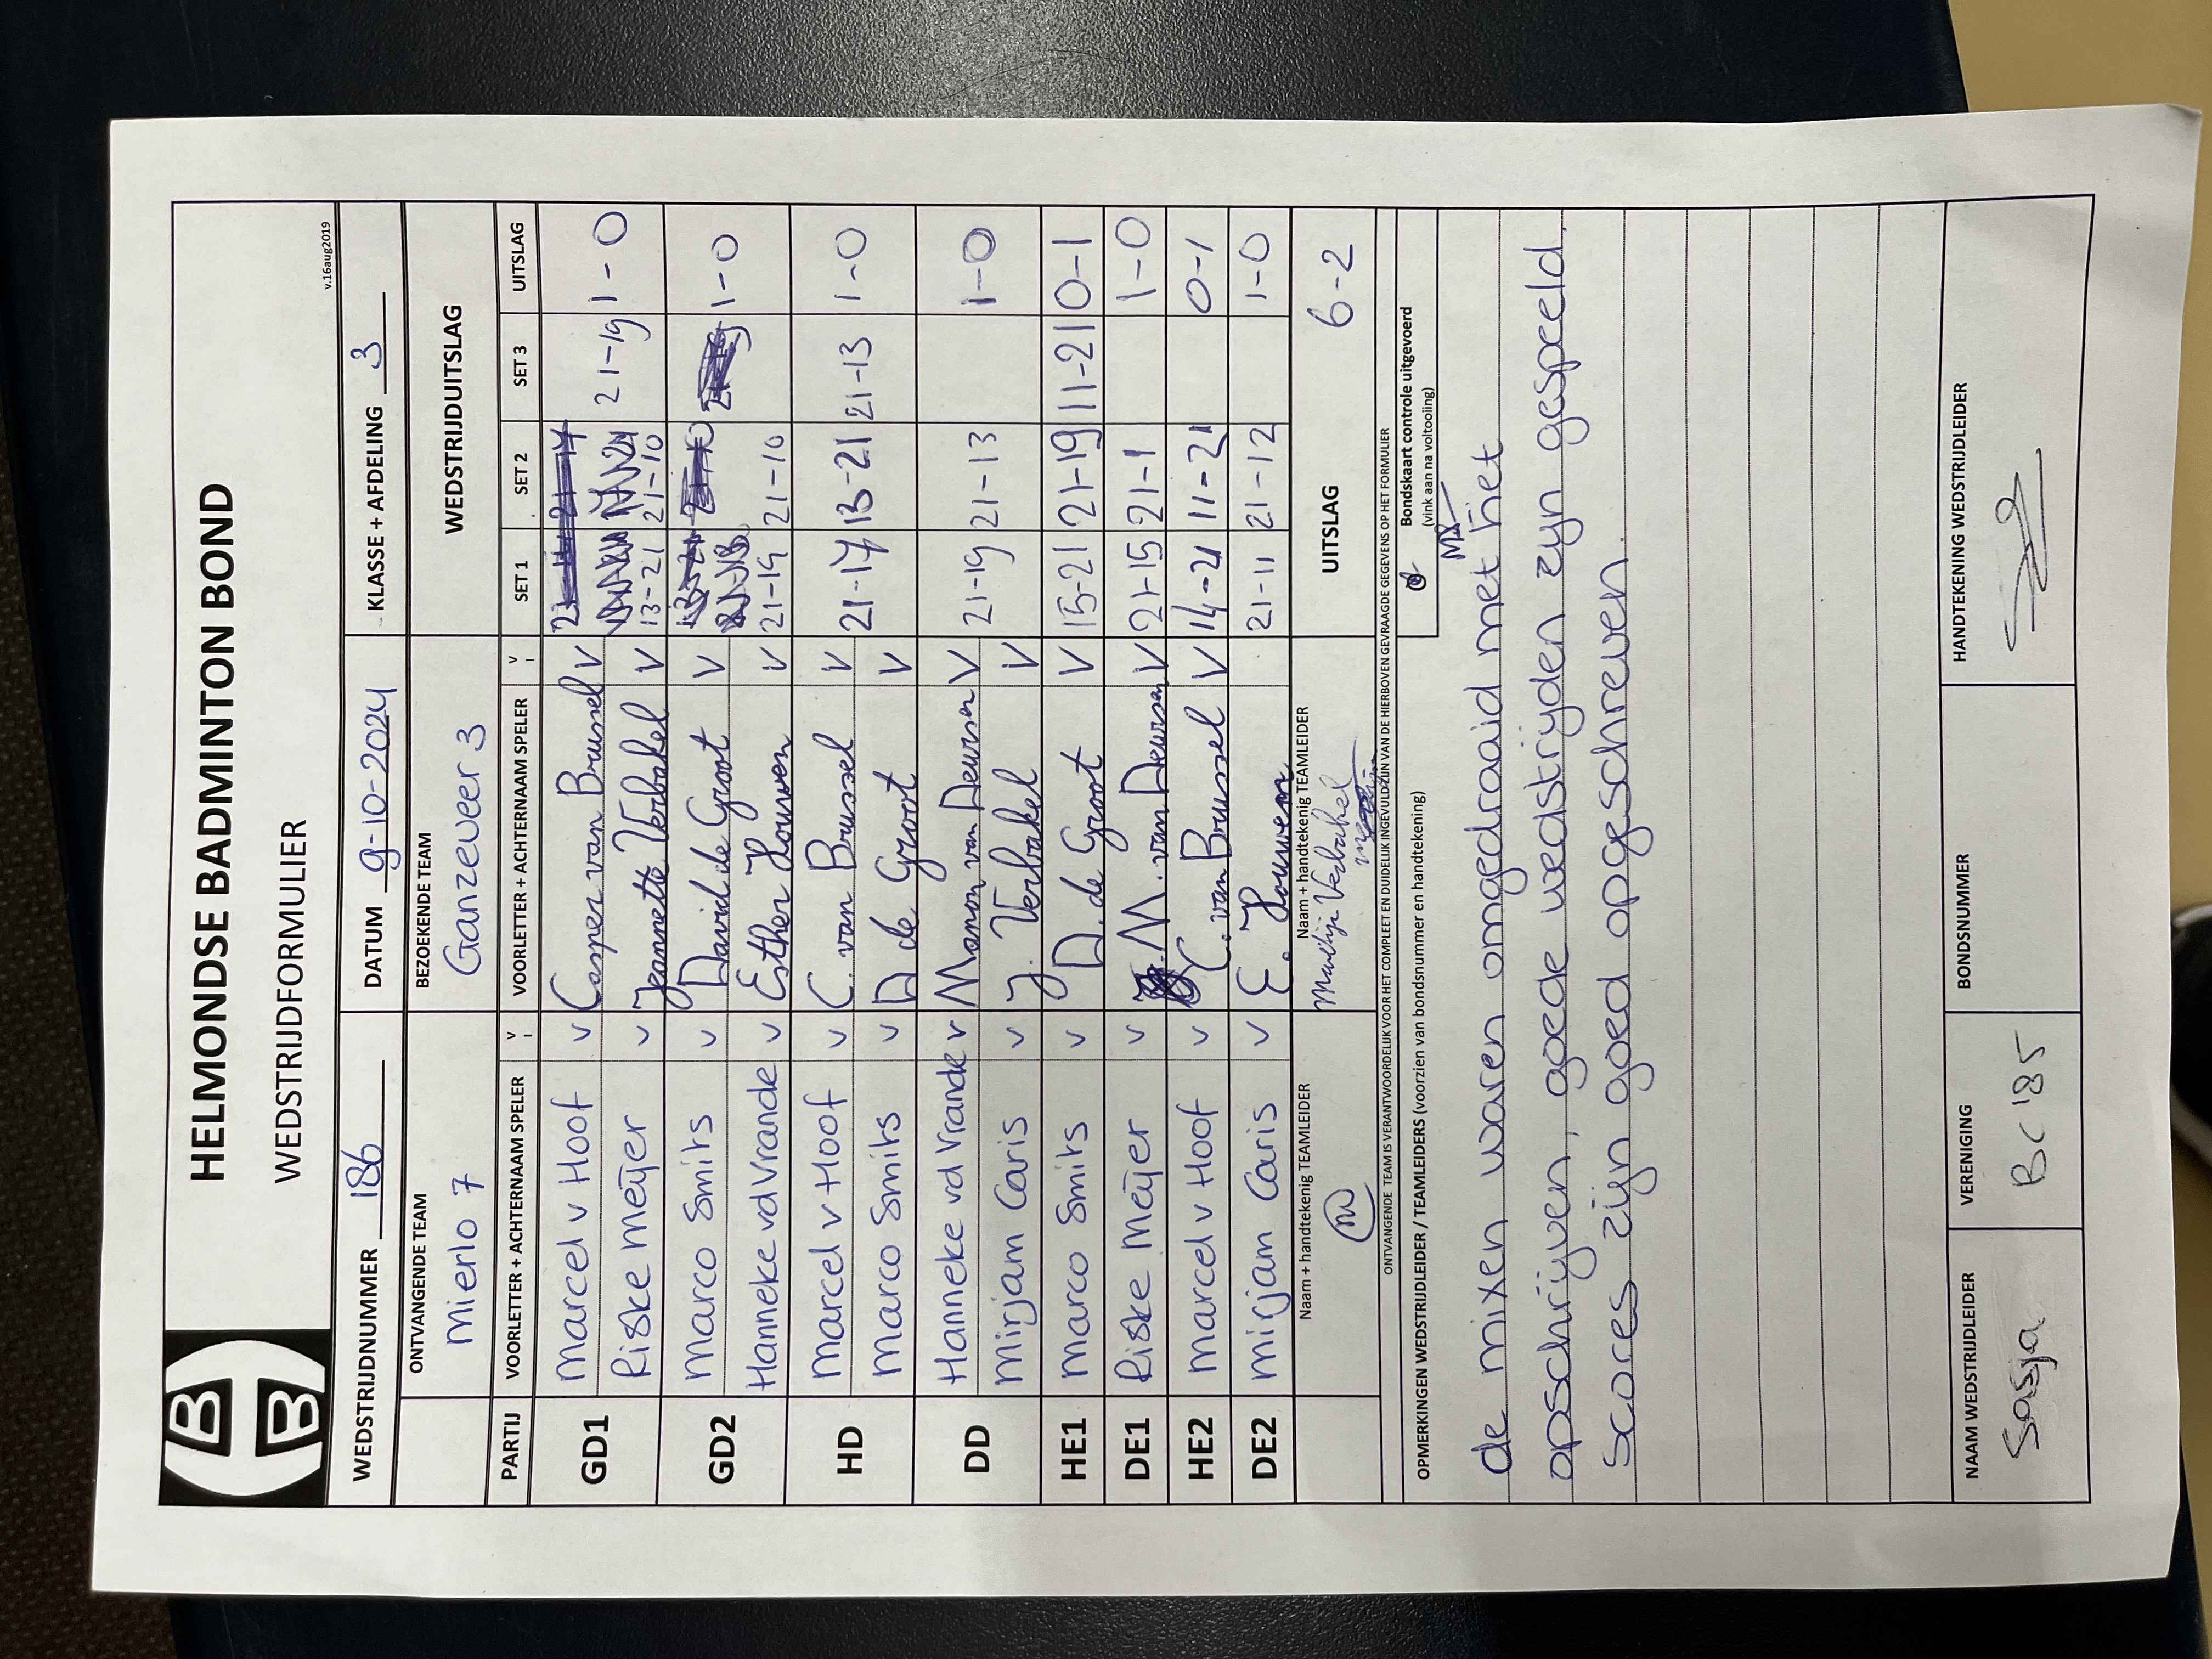 HELMONDSE BADMINTON BOND
WEDSTRIJDFORMULIER
v.16aug2019
WEDSTRIJDNUMMER 186 DATUM 9-10-2024 KLASSE + AFDELING 3
ONTVANGENDE TEAM BEZOEKENDE TEAM WEDSTRIJDUITSLAG
Mierlo 7 Ganzeveer 3
PARTIJ VOORLETTER + ACHTERNAAM SPELER V VOORLETTER + ACHTERNAAM SPELER V SET 1 SET 2 SET 3 UITSLAG
GD1 Marcel v Hoof v Casper van Brussel v
Riske Meijer v Jeannette Verbakel v 13-21 21-10 21-19 1-0
GD2 Marco Smits v David de Groot v
Hanneke vd Vrande v Esther Houwen v 21-19 21-10 1-0
HD Marcel v Hoof v C. van Brussel v 21-17 13-21 21-13 1-0
Marco Smits v D de Groot v
DD Hanneke vd Vrande v Manon van Deursen v 21-19 21-13 1-0
Mirjam Caris v J. Verbakel v
HE1 Marco Smits v D. de Groot v 15-21 21-19 11-21 0-1
DE1 Riske Meijer v M. van Deursen v 21-15 21-1 1-0
HE2 Marcel v Hoof v C. van Brussel v 14-21 11-21 0-1
DE2 Mirjam Caris v E. Houwen 21-11 21-12 1-0
Naam + handtekenig TEAMLEIDER Naam + handtekenig TEAMLEIDER UITSLAG 6-2
Verbakel
ONTVANGENDE TEAM IS VERANTWOORDELIJK VOOR HET COMPLEET EN DUIDELIJK INGEVULD ZIJN VAN DE HIERBOVEN GEVRAAGDE GEGEVENS OP HET FORMULIER
OPMERKINGEN WEDSTRIJDLEIDER / TEAMLEIDERS (voorzien van bondsnummer en handtekening)
Bondskaart controle uitgevoerd
(vink aan na voltooling)
de mixen waren omgedraaid met het
opschrijven, goede wedstrijden zijn gespeeld,
scores zijn goed opgeschreven.
NAAM WEDSTRIJDLEIDER VERENIGING BONDSNUMMER HANDTEKENING WEDSTRIJDLEIDER
Sasja BC '85